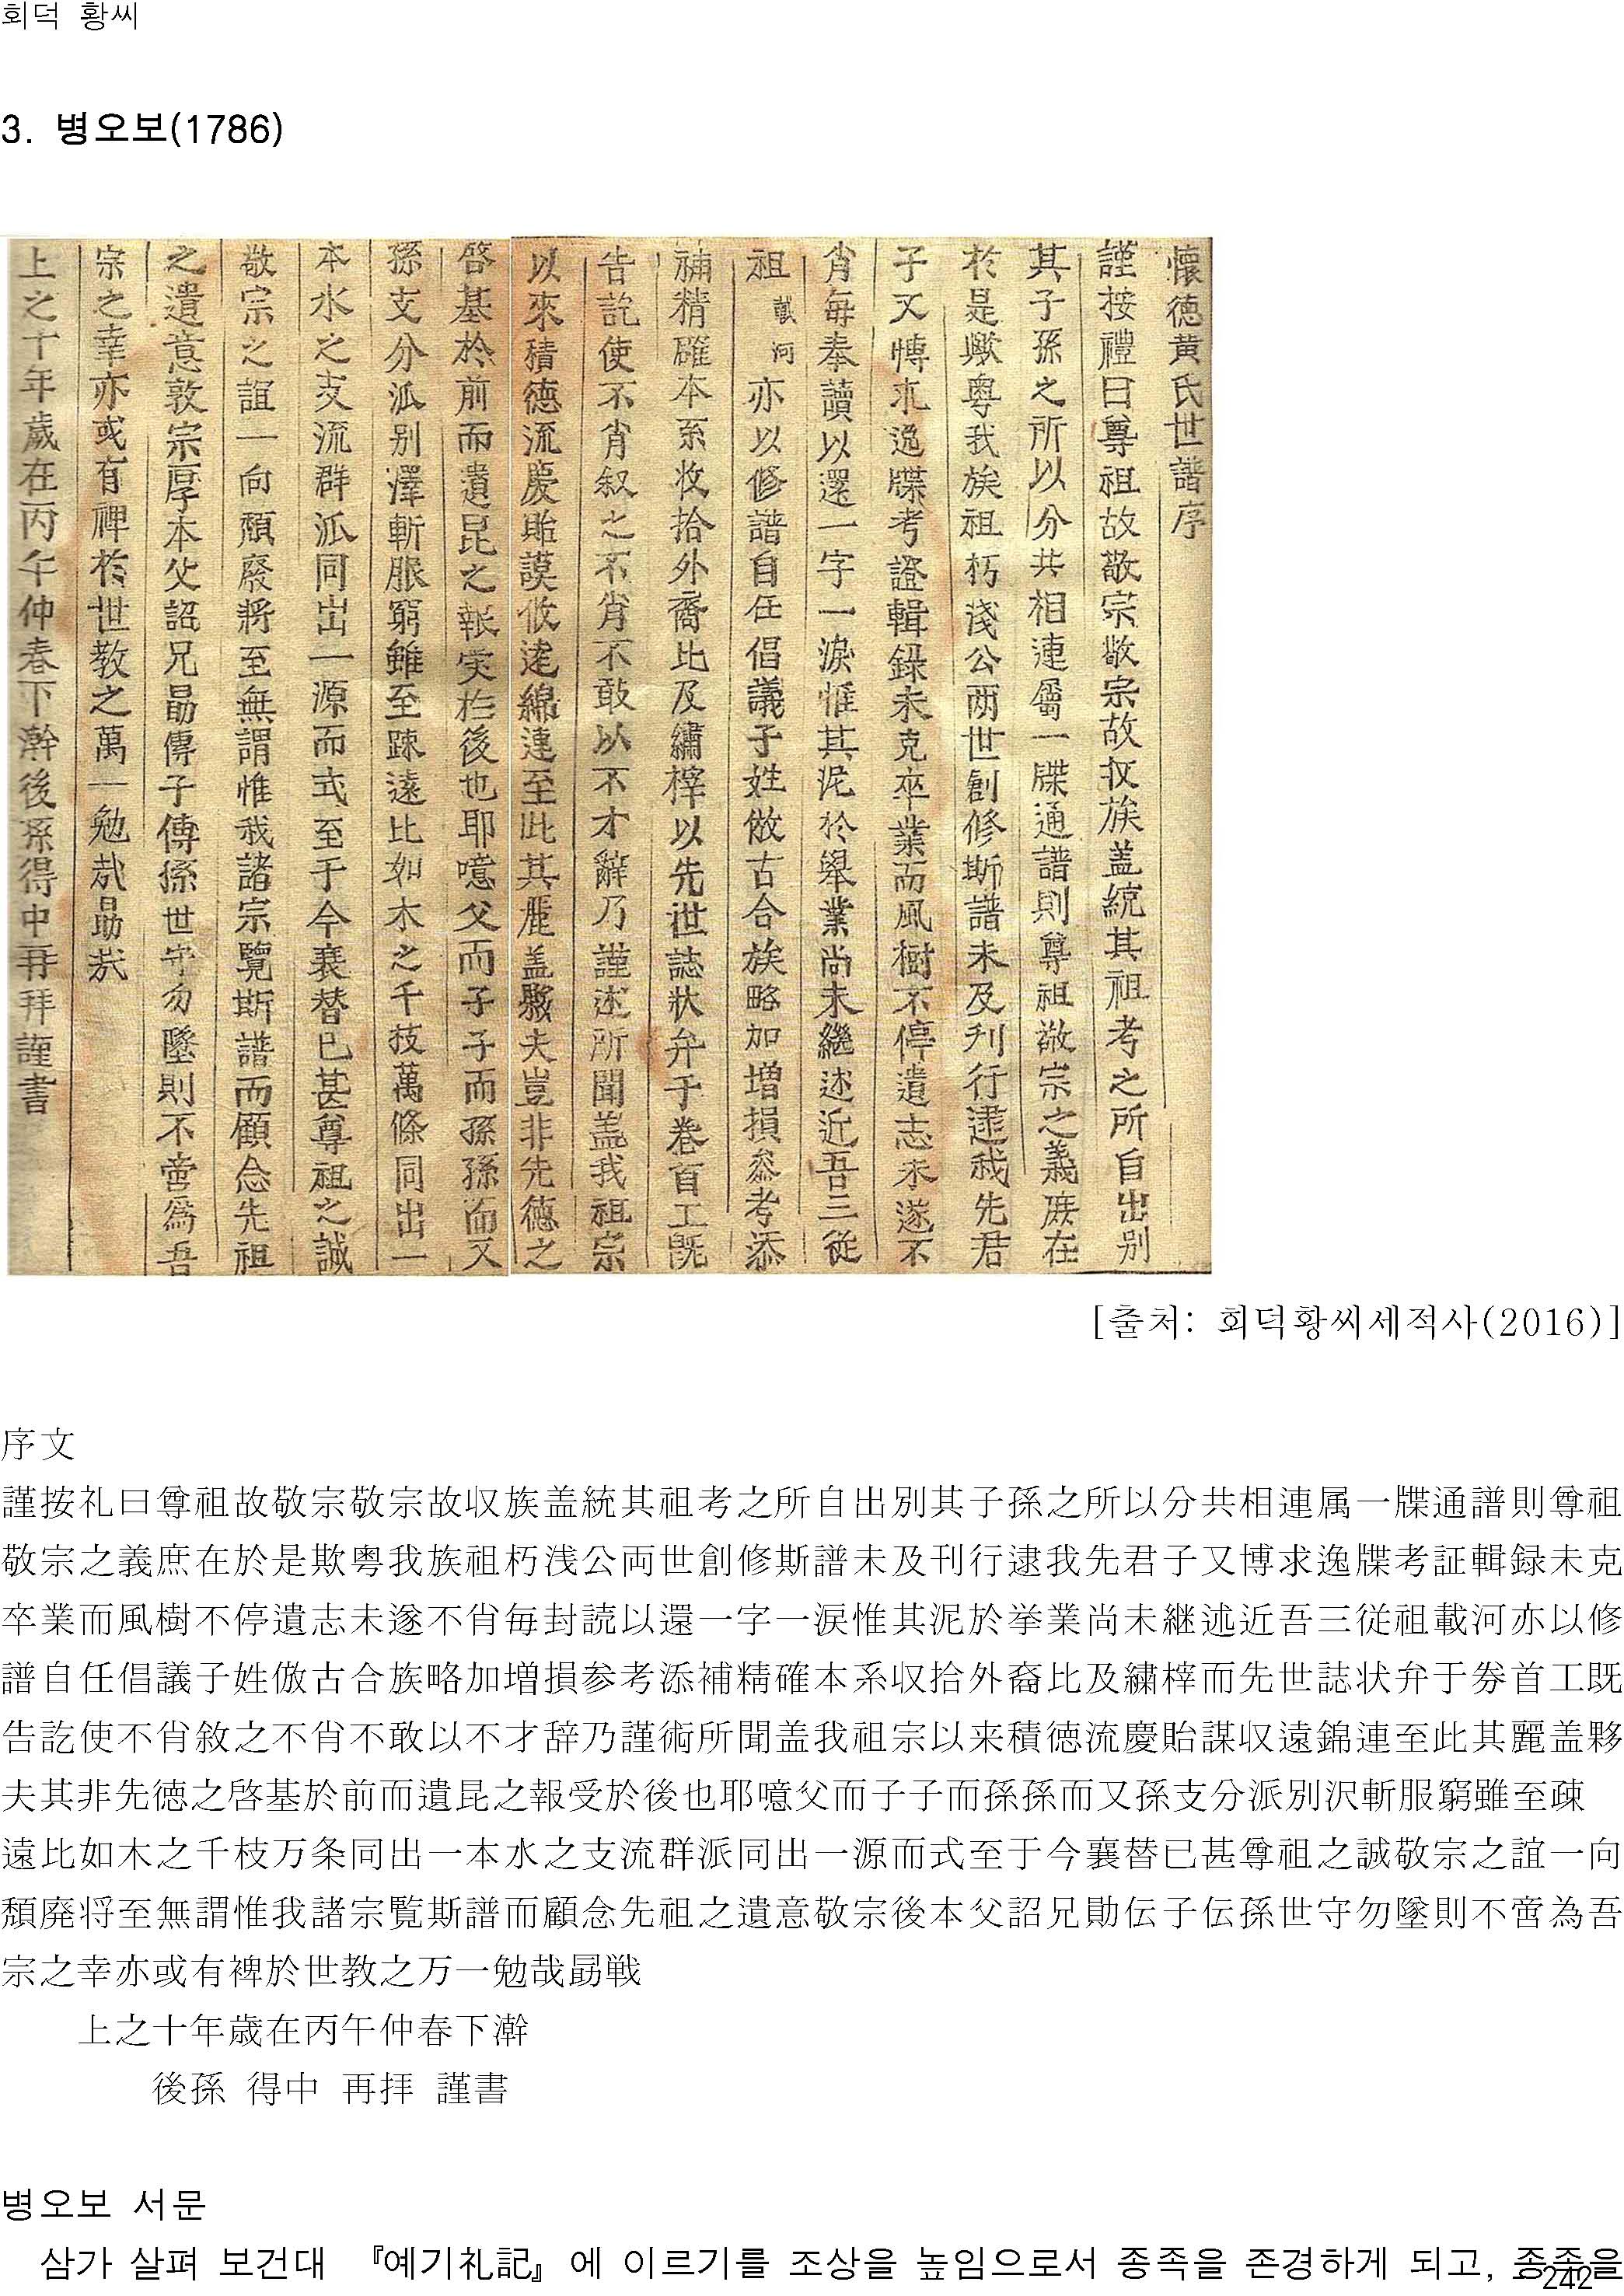 회덕 황씨
3. 병오보(1786)
懷德黃氏世譜序
謹按禮曰尊祖故敬宗敬宗故収族盖統其祖考之所自出別
其子孫之所以分共相連屬一牒通譜則尊祖敬宗之義庶在
於是歟粤我族祖朽淺公两世創修斯譜未及刋行逮我先君
子又博求逸牒考證輯錄未克卒業而風樹不停遺志未遂不
肖每奉讀以還一字一淚惟其泥於舉業尚未繼述近吾三從
祖載河亦以修譜自任倡議子姓倣古合族略加增損叅考添
補精確本系收拾外裔比及繡榟以先世誌狀弁于卷首工旣
告訖使不肖叙之不肖不敢以不才辭乃謹述所聞盖我祖宗
以來積德流慶貽謨攸遠綿連至此其麗盖夥夫豈非先德之
啓基於前而遺昆之報宲於後也耶噫父而子子而孫孫而又
孫支分派别澤斬服窮雖至踈遠比如木之千枝萬條同出一
本水之支流群派同出一源而式至于今衰替已甚尊祖之誠
敬宗之誼一向頹廢將至無謂惟我諸宗覽斯譜而顧念先祖
之遺意敦宗厚本父詔兄勗傳子傳孫世守勿墜則不啻爲吾
宗之幸亦或有裨於世教之萬一勉哉勗哉
上之十年歲在丙午仲春下澣後孫得中再拜謹書
[출처: 회덕황씨세적사(2016)]
序文
謹按礼曰尊祖故敬宗敬宗故収族盖統其祖考之所自出別其子孫之所以分共相連属一牒通譜則尊祖
敬宗之義庶在於是欺粤我族祖朽浅公両世創修斯譜未及刊行逮我先君子又博求逸牒考証輯録未克
卒業而風樹不停遺志未遂不肖毎封読以還一字一涙惟其泥於挙業尚未継述近吾三従祖載河亦以修
譜自任倡議子姓倣古合族略加増損参考添補精確本系収拾外裔比及繡榟而先世誌状弁于券首工既
告訖使不肖敘之不肖不敢以不才辞乃謹術所聞盖我祖宗以来積徳流慶貽謀収遠錦連至此其麗盖夥
夫其非先徳之啓基於前而遺昆之報受於後也耶噫父而子子而孫孫而又孫支分派別沢斬服窮雖至疎
遠比如木之千枝万条同出一本水之支流群派同出一源而式至于今襄替已甚尊祖之誠敬宗之誼一向
頹廃将至無謂惟我諸宗覧斯譜而顧念先祖之遺意敬宗後本父詔兄勛伝子伝孫世守勿墜則不啻為吾
宗之幸亦或有裨於世教之万一勉哉勗戦
上之十年歳在丙午仲春下澣
後孫 得中 再拝 謹書
병오보 서문
삼가 살펴 보건대 『예기礼記』에 이르기를 조상을 높임으로서 종족을 존경하게 되고, 종족을
242